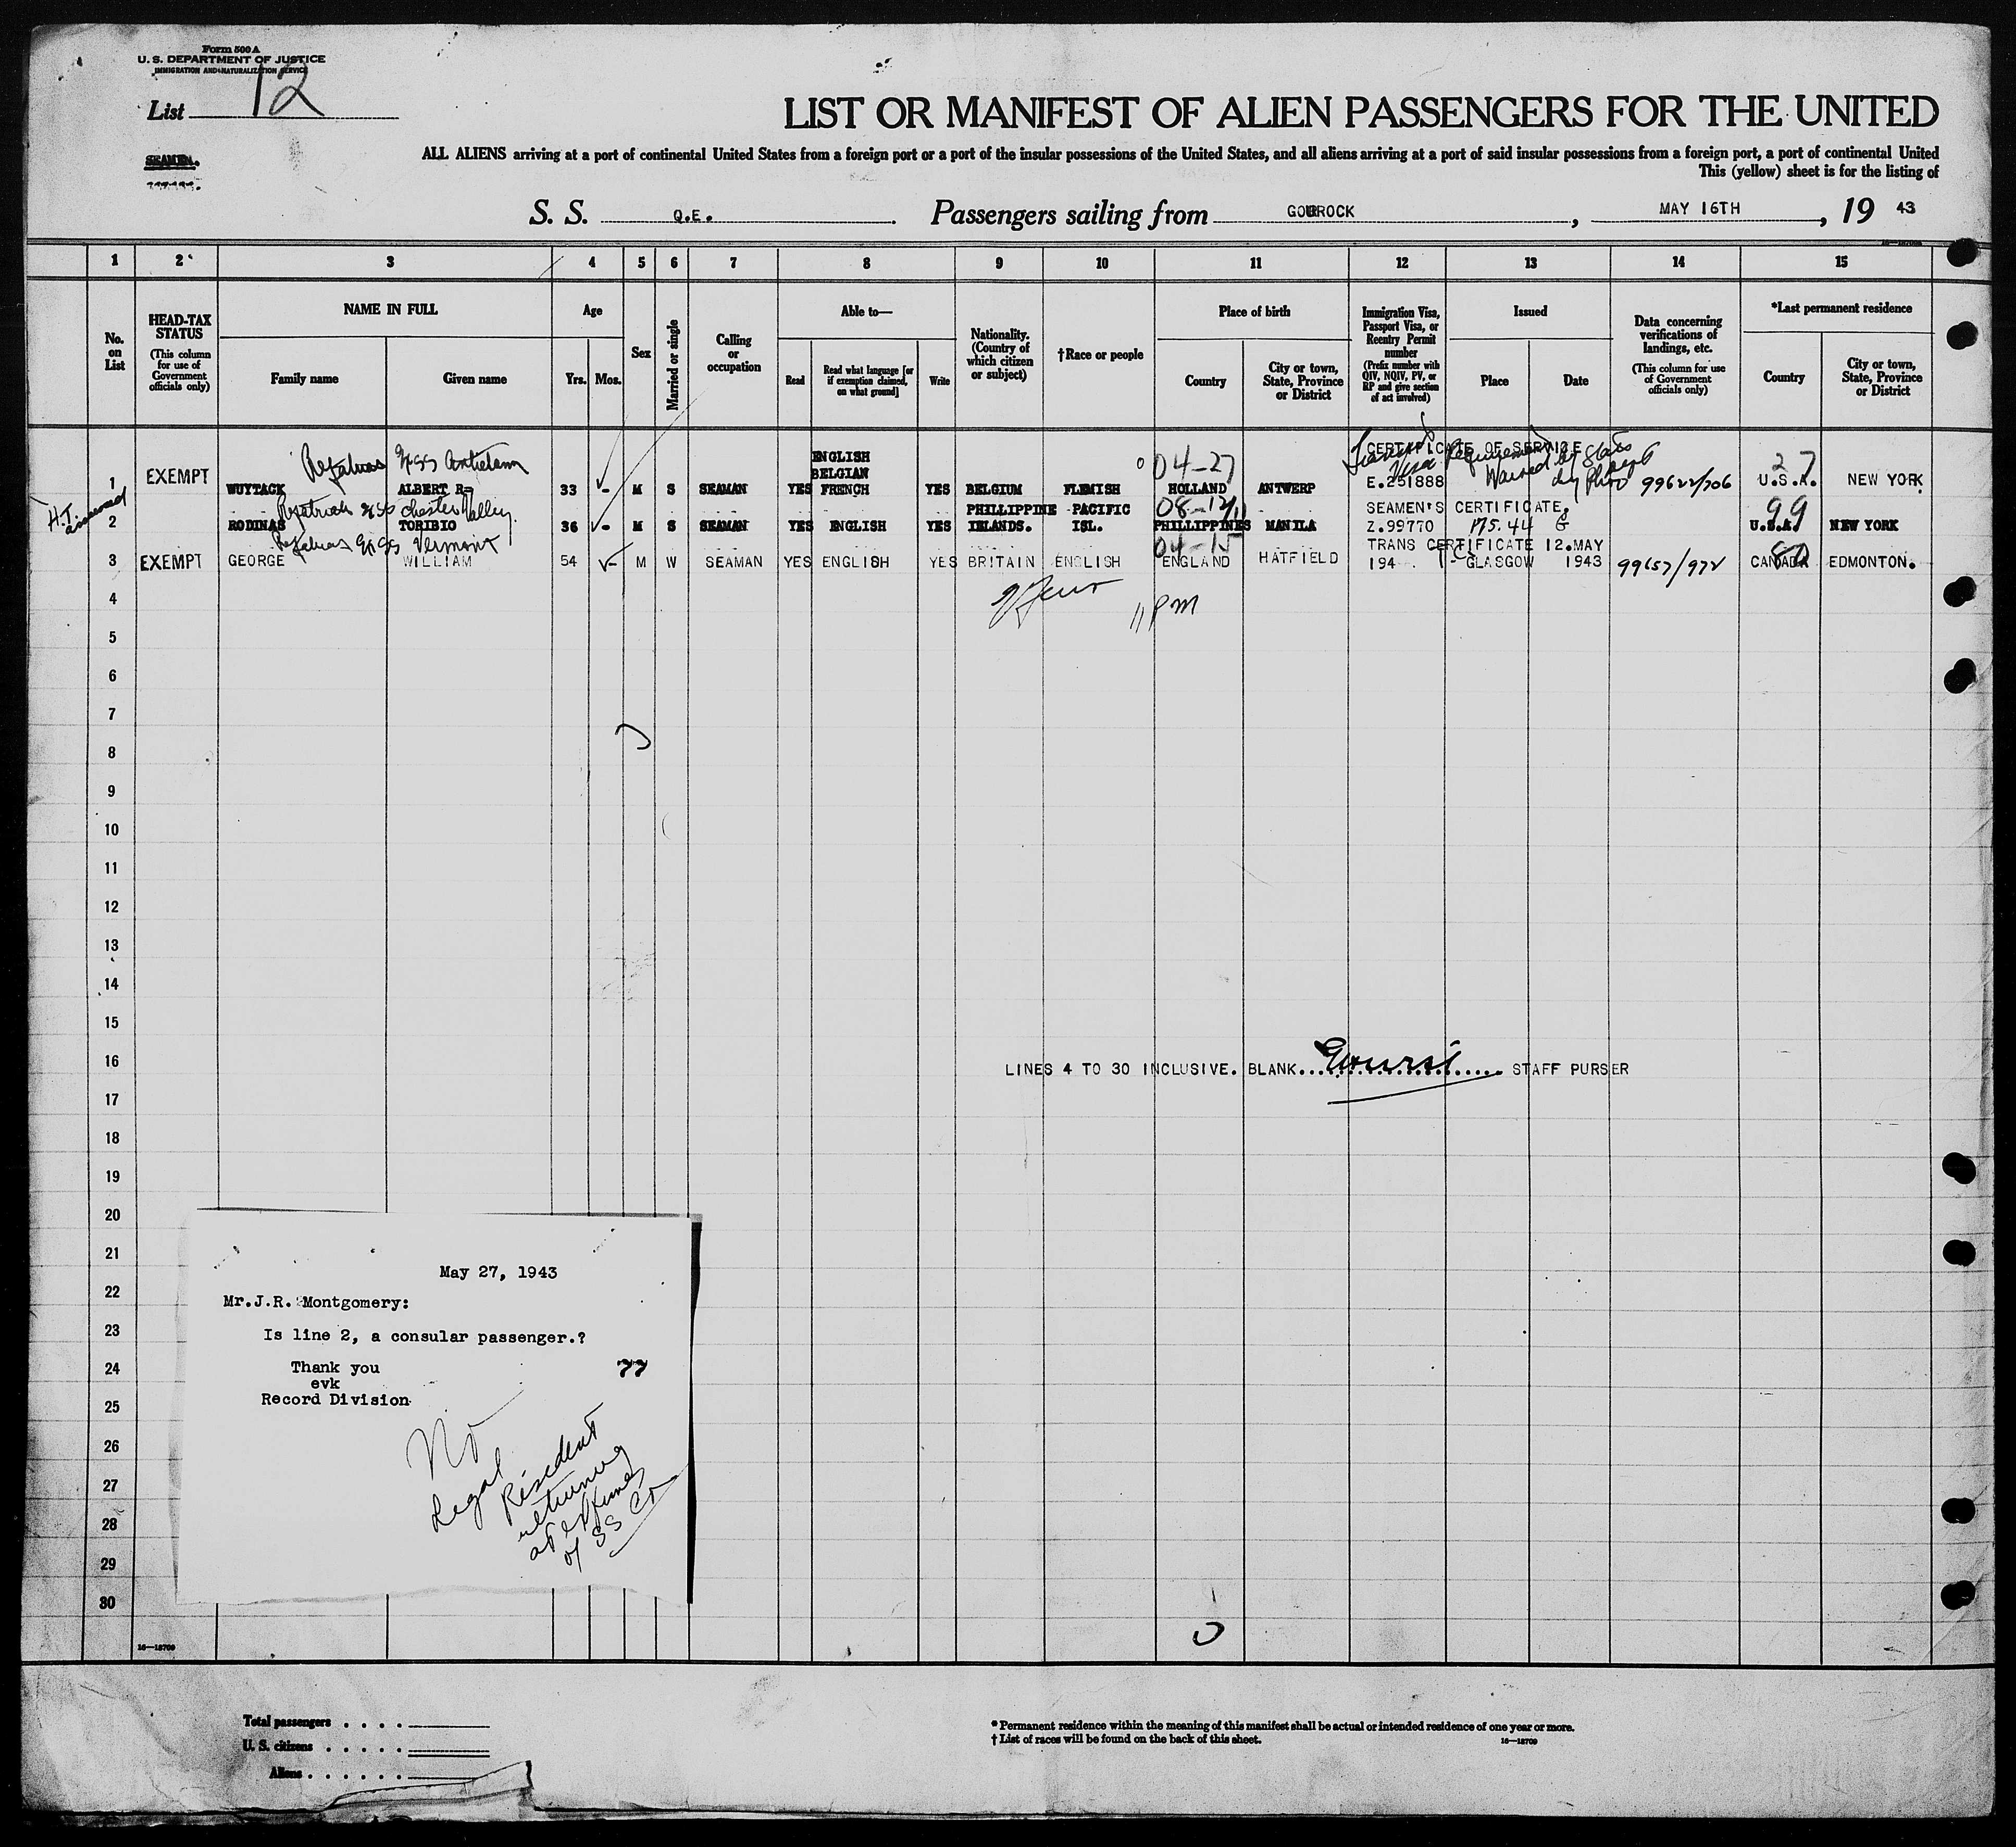 Form 500 A
U. S. DEPARTMENT OF JUSTICE
IMMIGRATION AND NATURALIZATION SERVICE
List 12
SEAMEN.
LIST OR MANIFEST OF ALIEN PASSENGERS FOR THE UNITED
ALL ALIENS arriving at a port of continental United States from a foreign port or a port of the insular possessions of the United States, and all aliens arriving at a port of said insular possessions from a foreign port, a port of continental United
This (yellow) sheet is for the listing of
S. S. Q.E. Passengers sailing from GOUROCK, MAY 16TH, 19 43
1 2 3 4 5 6 7 8 9 10 11 12 13 14 15
No. on List
HEAD-TAX STATUS (This column for use of Government officials only)
NAME IN FULL Family name Given name
Age Yrs. Mos.
Sex
Married or single
Calling or occupation
Able to— Read Read what language [or if exemption claimed, on what ground] Write
Nationality. (Country of which citizen or subject)
†Race or people
Place of birth Country City or town, State, Province or District
Immigration Visa, Passport Visa, or Reentry Permit number (Prefix number with QIV, NQIV, PV, or RP and give section of act involved)
Issued Place Date
Data concerning verifications of landings, etc. (This column for use of Government officials only)
*Last permanent residence Country City or town, State, Province or District
SS Antietam ENGLISH 04-27 CERTIFICATE OF SERVICE
Visa Requirement Waived by State Dept
EXEMPT BELGIAN 27
1 WUYTACK ALBERT R. 33 - M S SEAMAN YES FRENCH YES BELGIUM FLEMISH HOLLAND ANTWERP E.251888 99622/706 U.S.A. NEW YORK
H.T. assessed
SS Chester Valley PHILLIPPINE PACIFIC 08-12/11 SEAMEN'S CERTIFICATE. 99
2 RODINAS TORIBIO 36 - M S SEAMAN YES ENGLISH YES ISLANDS. ISL. PHILLIPPINES MANILA Z.99770 175.44 G U.S.A. NEW YORK
SS Vermont 04-15 TRANS CERTIFICATE 12.MAY
3 EXEMPT GEORGE WILLIAM 54 - M W SEAMAN YES ENGLISH YES BRITAIN ENGLISH ENGLAND HATFIELD 194 GLASGOW 1943 99657/972 CANADA EDMONTON.
4
11 PM
5
6
7
8
9
10
11
12
13
14
15
16 LINES 4 TO 30 INCLUSIVE. BLANK STAFF PURSER
17
18
19
20
21
22
23
24
25
26
27
28
29
30
May 27, 1943
Mr.J.R. Montgomery:
Is line 2, a consular passenger.?
Thank you 77
evk
Record Division
No
Legal Resident
returning
at expense
of SS Co
16—18709
Total passengers
U. S. citizens
Aliens
* Permanent residence within the meaning of this manifest shall be actual or intended residence of one year or more.
† List of races will be found on the back of this sheet. 16—18709